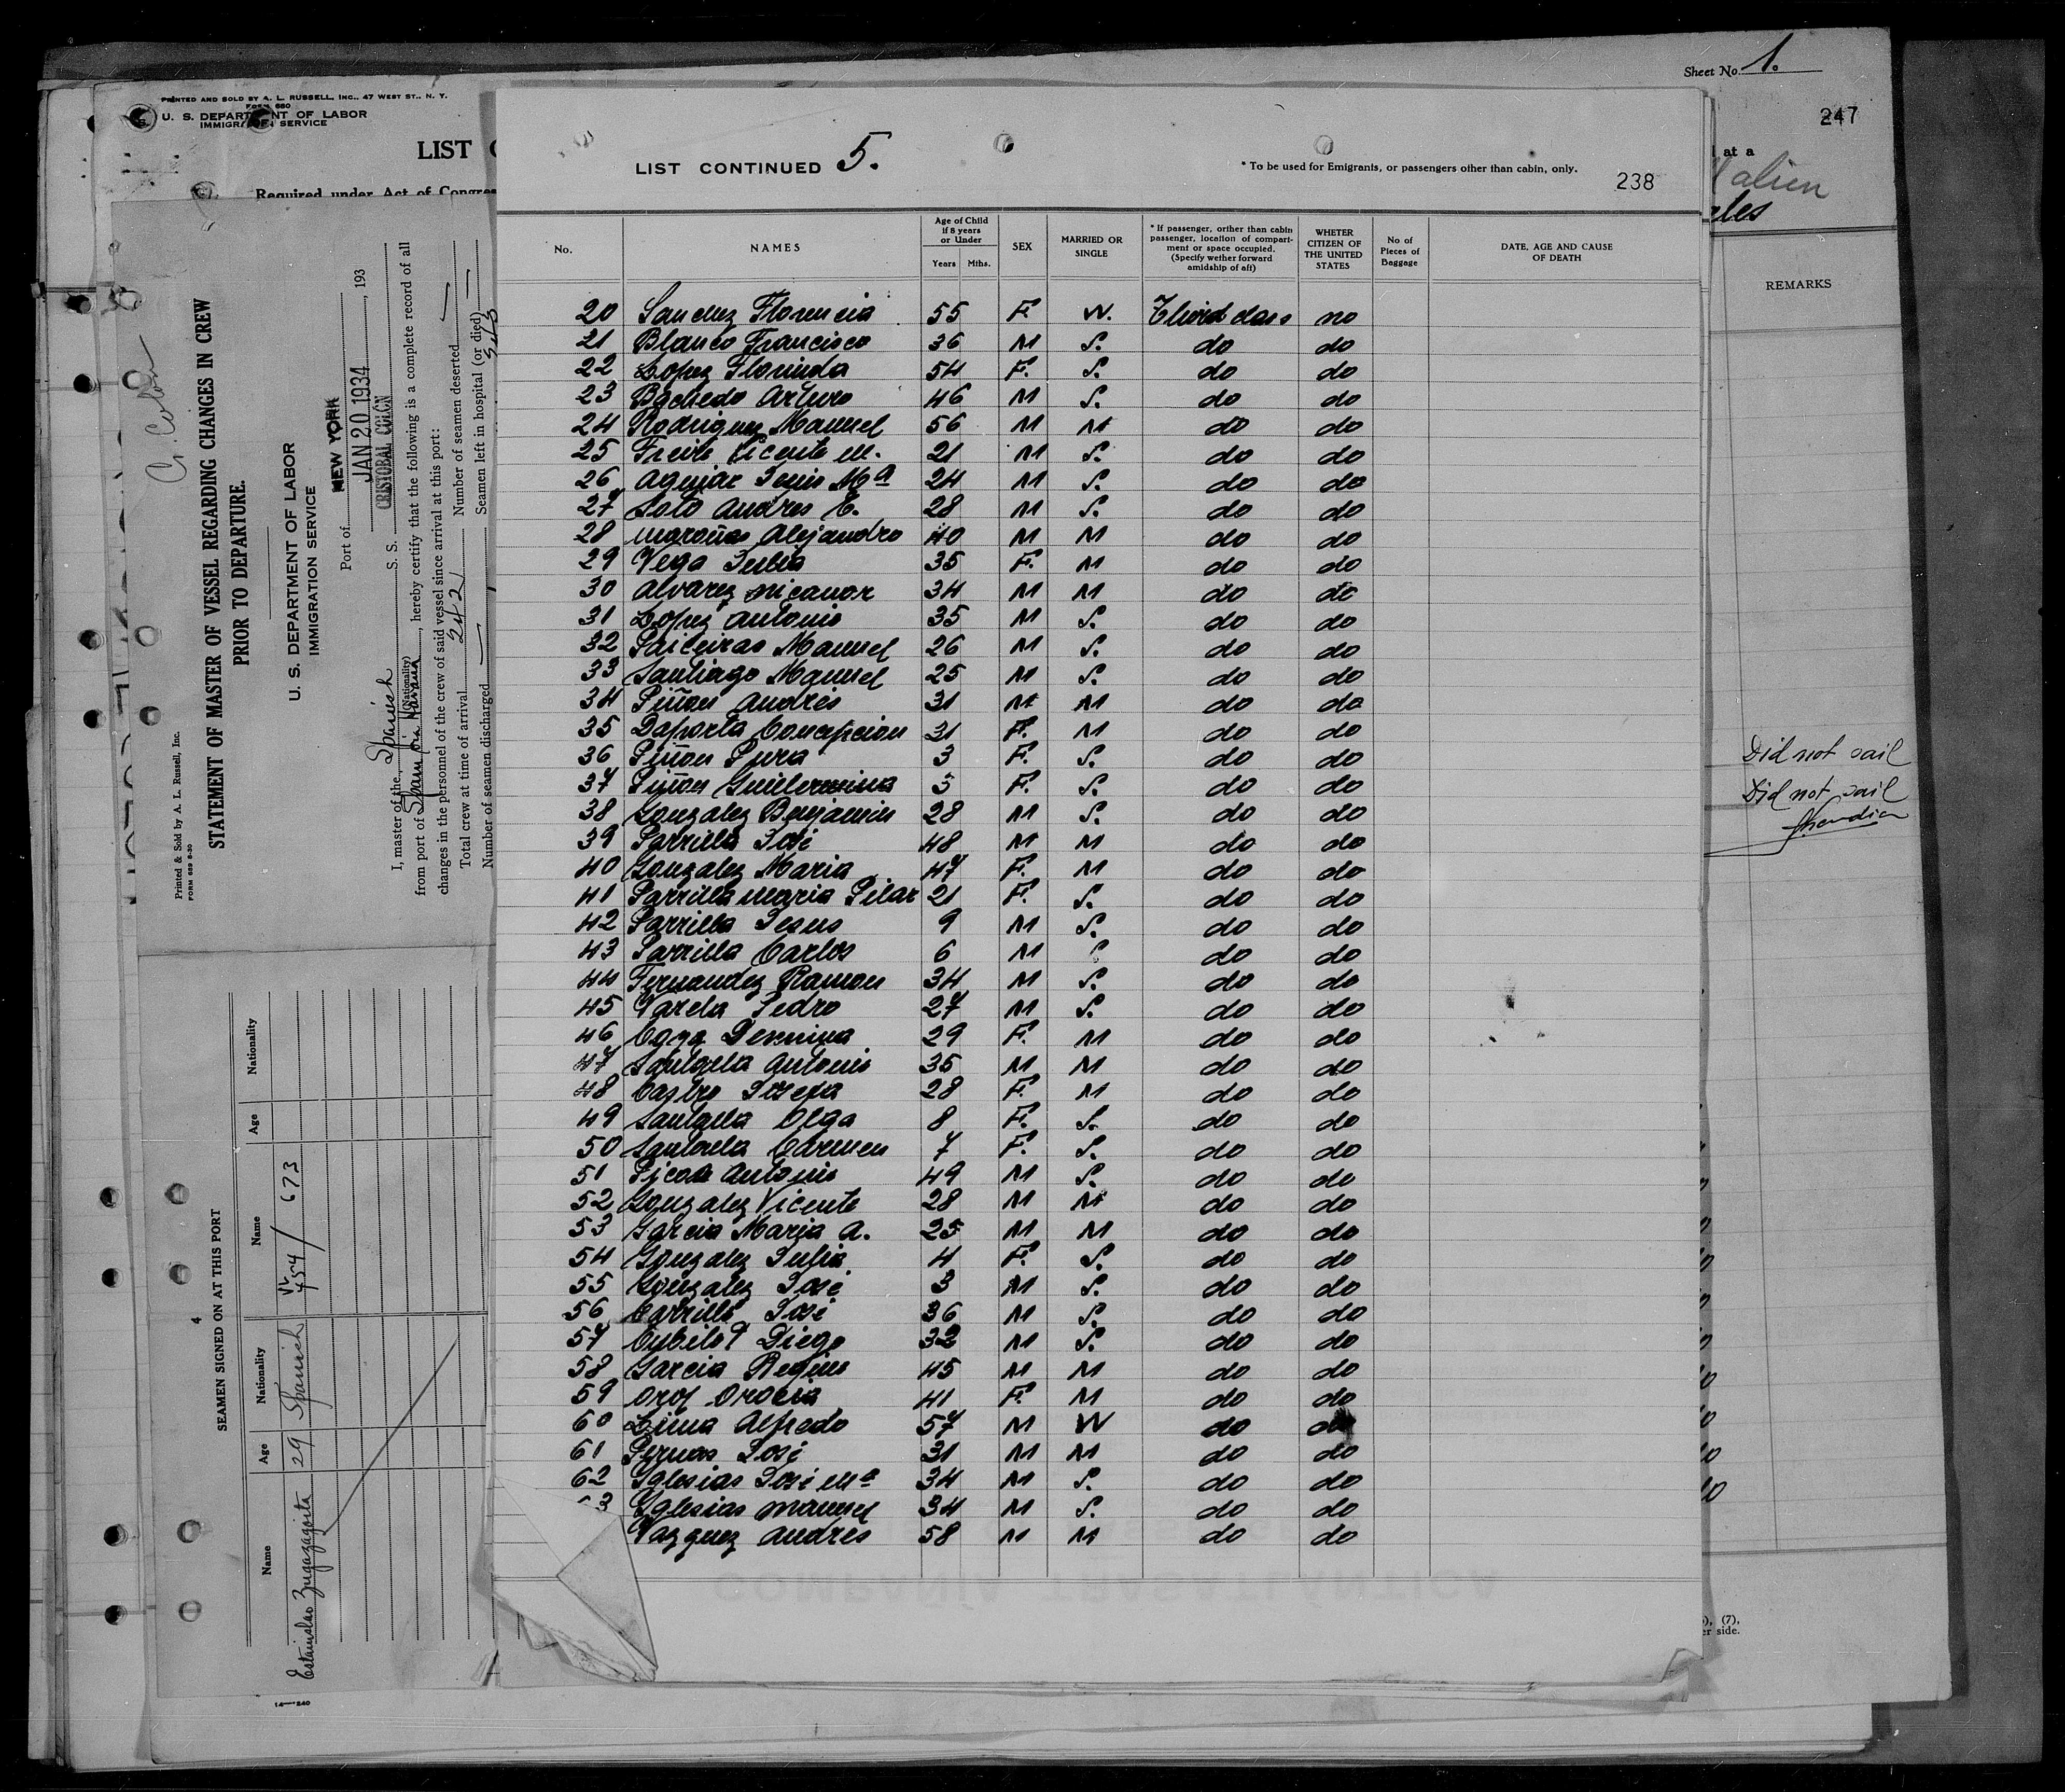 Sheet No. 1.
247
PRINTED AND SOLD BY A. L. RUSSELL, INC., 47 WEST ST., N. Y.
FORM 680
U. S. DEPARTMENT OF LABOR
IMMIGRATION SERVICE
LIST
Required under Act of Congres
at a
alien
REMARKS
Did not sail
Did not sail
C. Colon
Printed & Sold by A. L. Russell, Inc.
FORM 689 8-30
STATEMENT OF MASTER OF VESSEL REGARDING CHANGES IN CREW
PRIOR TO DEPARTURE.
U. S. DEPARTMENT OF LABOR
IMMIGRATION SERVICE
Port of NEW YORK
JAN 20 1934, 193
I, master of the Spanish S. S. CRISTOBAL COLON
(Nationality)
from port of Spain via Havana, hereby certify that the following is a complete record of all
changes in the personnel of the crew of said vessel since arrival at this port:
Total crew at time of arrival 242 Number of seamen deserted —
Number of seamen discharged — Seamen left in hospital (or died) —
4
SEAMEN SIGNED ON AT THIS PORT
Name Age Nationality Name Age Nationality
Estanislao Zugazagoitia 29 Spanish 454/ 673
14—240
LIST CONTINUED 5.
* To be used for Emigrants, or passengers other than cabin, only.
238
No. NAMES Age of Child if 8 years or Under Years Mths. SEX MARRIED OR SINGLE * If passenger, orither than cabin passenger, location of compartment or space occupied. (Specify wether forward amidship of aft) WHETER CITIZEN OF THE UNITED STATES No of Pieces of Baggage DATE, AGE AND CAUSE OF DEATH
20 Sanchez Florencia 55 F. W. Third class no
21 Blanco Francisco 36 M S. do do
22 Lopez Florinda 54 F. S. do do
23 Bachedo Arturo 46 M S. do do
24 Rodriguez Manuel 56 M M do do
25 Freire Vicente M. 21 M S. do do
26 Aguiar Jesus Mª 24 M S. do do
27 Soto Andres E. 28 M S. do do
28 Maroñas Alejandro 40 M M do do
29 Vega Julia 35 F. M do do
30 Alvarez Nicanor 34 M M do do
31 Lopez Antonio 35 M S. do do
32 Manuel 26 M S. do do
33 Santiago Manuel 25 M S. do do
34 Piñon Andres 31 M M do do
35 Daporta Concepcion 31 F. M do do
36 Piñon Pura 3 F. S. do do
37 Piñon Guillermina 3 F. S. do do
38 Gonzalez Benjamin 28 M S. do do
39 Parrilla José 48 M M do do
40 Gonzalez Maria 47 F. M do do
41 Parrilla Maria Pilar 21 F. S. do do
42 Parrilla Jesus 9 M S. do do
43 Parrilla Carlos 6 M S do do
44 Fernandez Ramon 34 M S. do do
45 Varela Pedro 27 M S. do do
46 29 F. M do do
47 Santaella Antonio 35 M M do do
48 Castro Josefa 28 F. M do do
49 Santaella Olga 8 F. S. do do
50 Santaella Carmen 7 F. S. do do
51 Picos Antonio 49 M S. do do
52 Gonzalez Vicente 28 M M do do
53 Garcia Maria A. 25 M M do do
54 Gonzalez Julia 4 F. S. do do
55 Gonzalez José 3 M S. do do
56 Carrillo José 36 M S. do do
57 Cubilot Diego 32 M S. do do
58 Garcia Regino 45 M M do do
59 Oroz Orocia 41 F. M do do
60 Lima Alfredo 57 M W do do
61 Pernas José 31 M M do do
62 Yglesias José Mª 34 M S. do do
3 Yglesias Manuel 34 M S. do do
Vazquez Andres 58 M M do do
, (7),
er side.